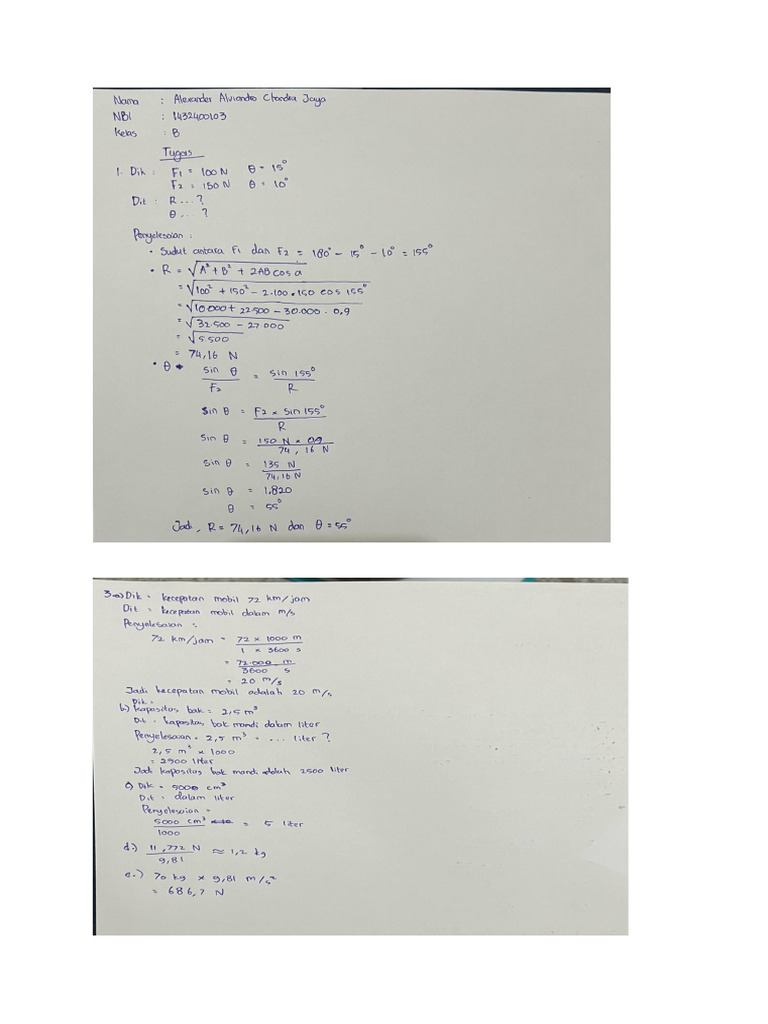 Nama : Alexander Alviandro Chandra Jaya
NBI : 1432400103
Kelas : B
Tugas
1. Dik : F1 = 100 N θ = 15°
F2 = 150 N θ = 10°
Dit : R ...?
θ ...?
Penyelesaian :
• Sudut antara F1 dan F2 = 180° - 15° - 10° = 155°
• R = √A² + B² + 2AB cos a
= √100² + 150² - 2.100.150 cos 155°
= √10.000 + 22.500 - 30.000 . 0,9
= √32.500 - 27.000
= √5.500
= 74,16 N
• θ
sin θ / F2 = sin 155° / R
sin θ = F2 x sin 155° / R
sin θ = 150 N x 0,9 / 74,16 N
sin θ = 135 N / 74,16 N
sin θ = 1,820
θ = 55°
Jadi, R = 74,16 N dan θ = 55°
3. a) Dik = kecepatan mobil 72 km/jam
Dit = kecepatan mobil dalam m/s
Penyelesaian :
72 km/jam = 72 x 1000 m / 1 x 3600 s
= 72.000 m / 3600 s
= 20 m/s
Jadi kecepatan mobil adalah 20 m/s
Dik =
b) kapasitas bak = 2,5 m³
Dit = kapasitas bak mandi dalam liter
Penyelesaian = 2,5 m³ = ... liter ?
2,5 m³ x 1000
= 2500 liter
Jadi kapasitas bak mandi adalah 2500 liter
c) Dik = 5000 cm³
Dit = dalam liter
Penyelesaian =
5000 cm³ / 1000 = 5 liter
d.) 11,772 N / 9,81 ≈ 1,2 kg
e.) 70 kg x 9,81 m/s²
= 686,7 N